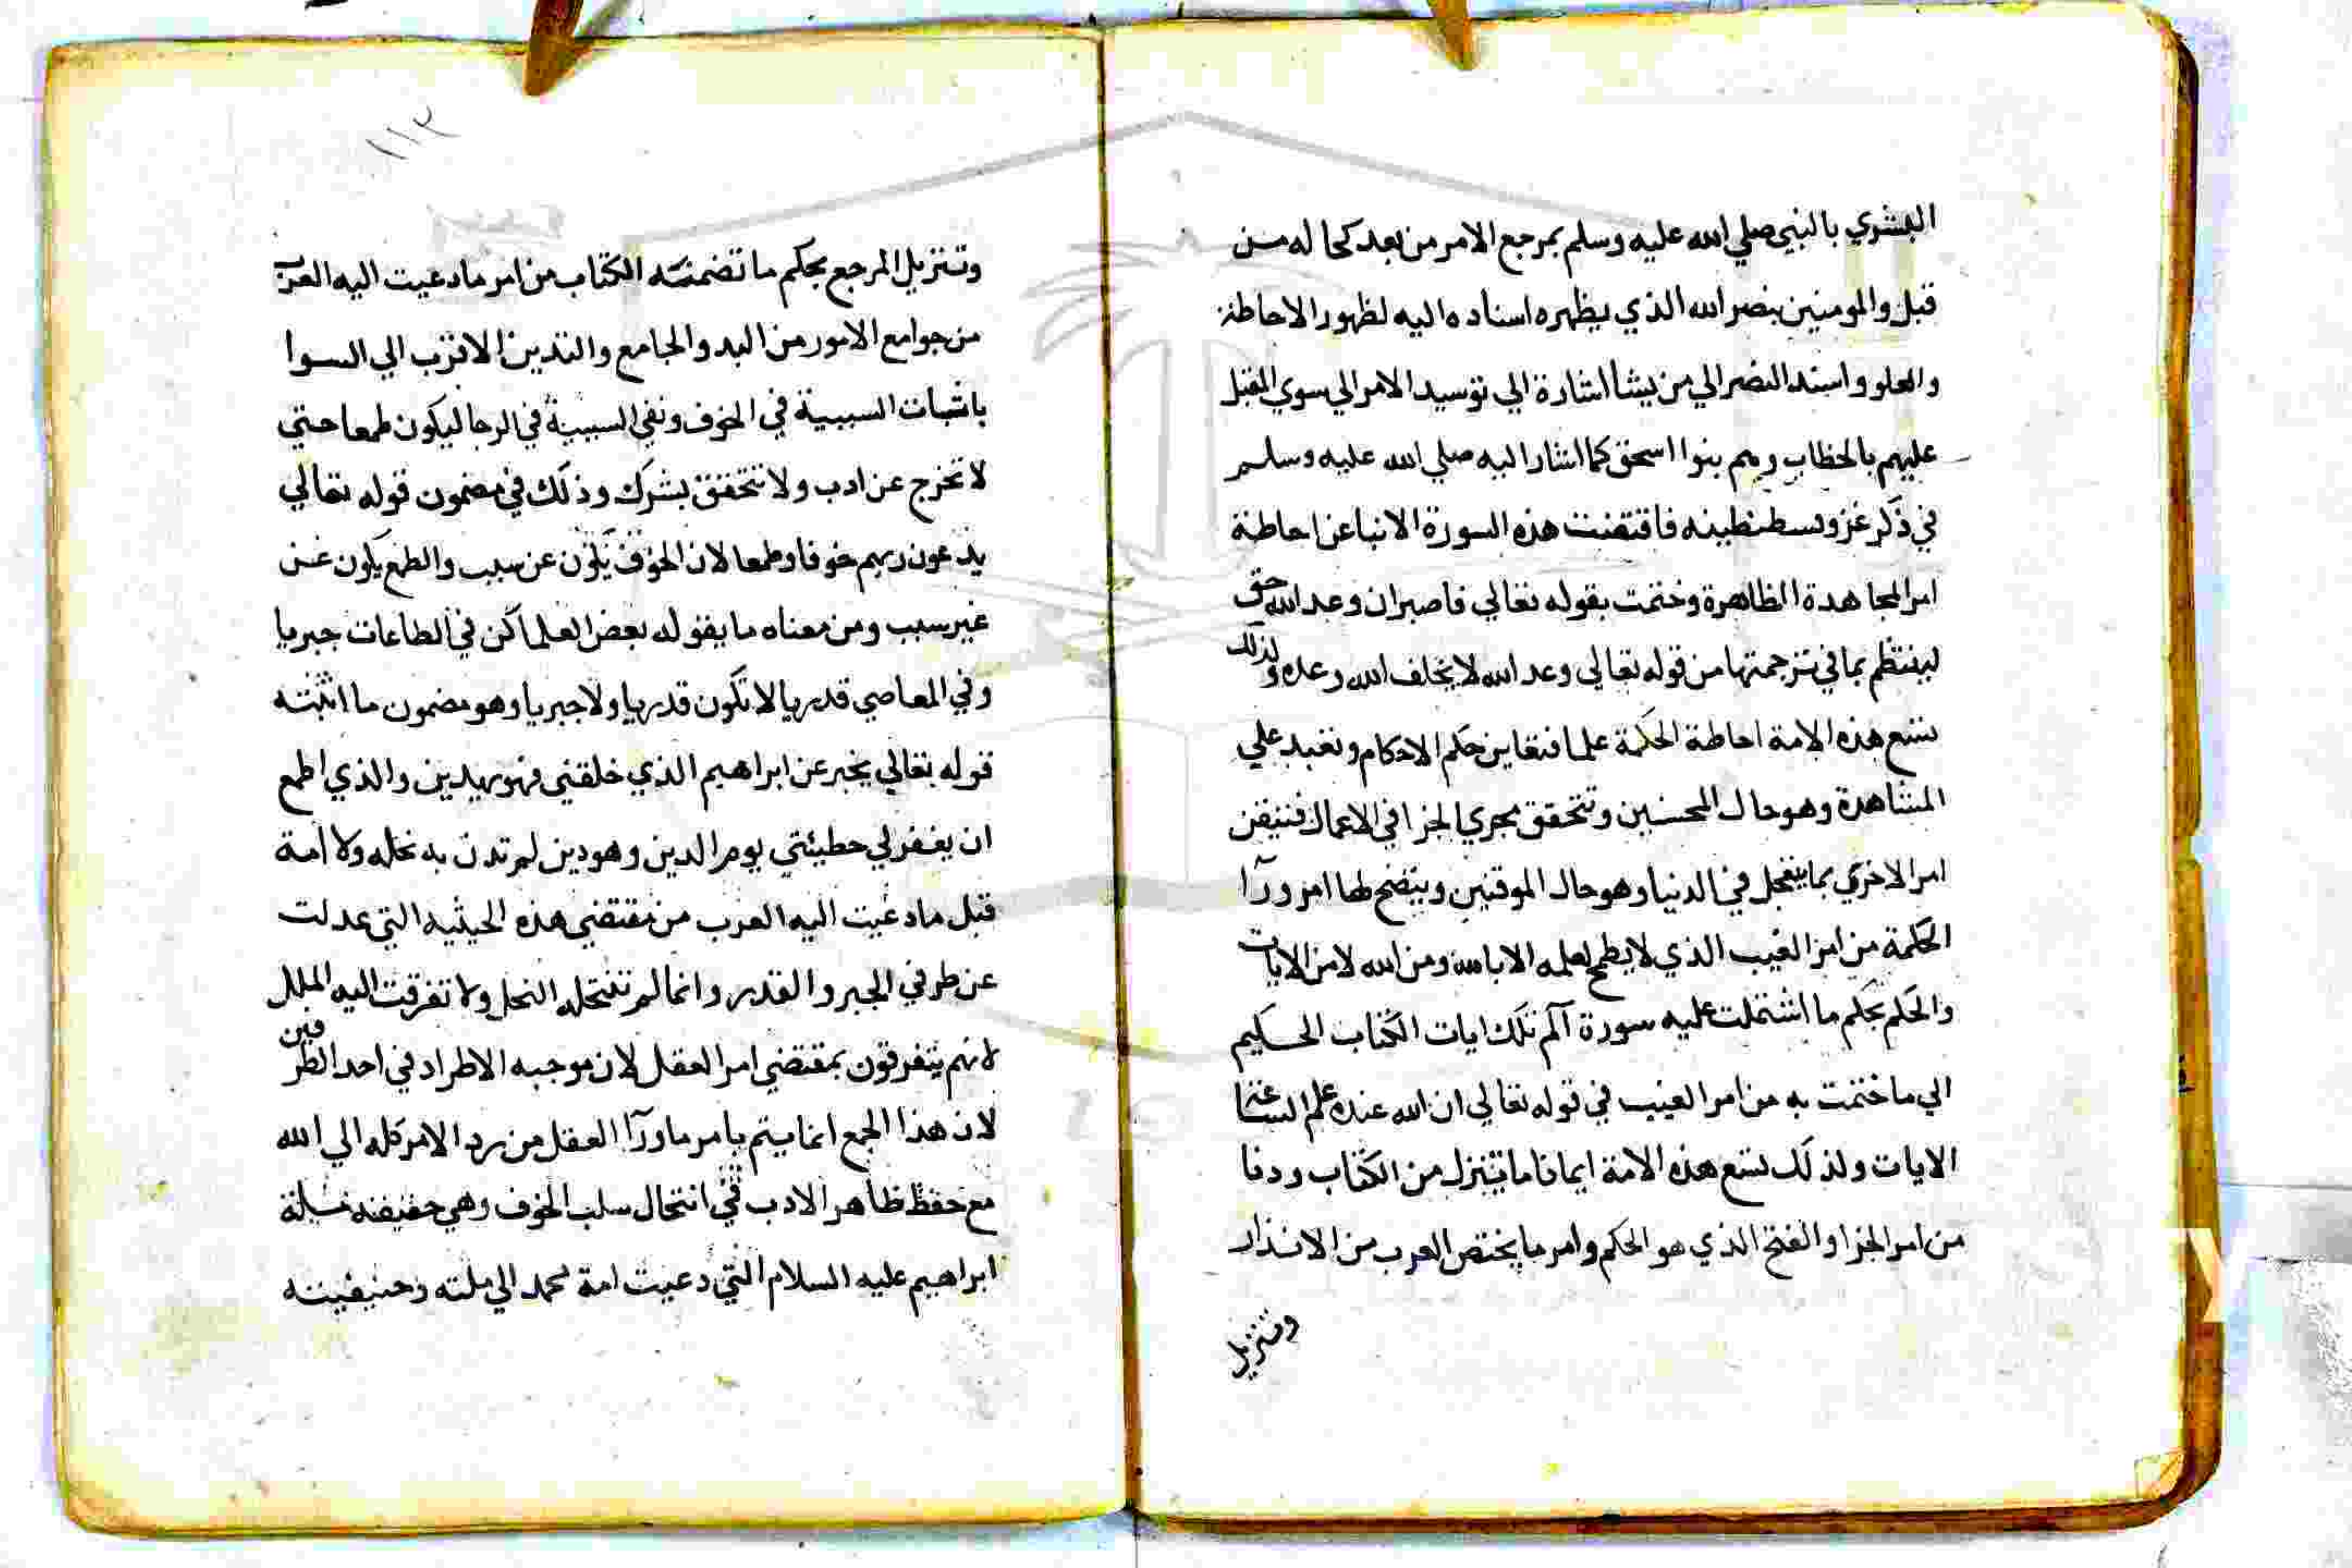 البشري بالنبي صلي الله عليه وسلم بمرجع الامر من بعد كحاله من
قبل والمومنين بنصر الله الذي يظهره اسناده اليه لظهور الاحاطة
والعلو واسند النصر الي من يشا اشارة الي توسيد الامر الي سوي المقبل
عليهم بالخطاب وهم بنوا اسحق كما اشار اليه صلي الله عليه وسلم
في ذكر غزو قسطنطينه فاقتضت هذه السورة الانبا عن احاطة
امر المجاهدة الظاهرة وختمت بقوله تعالي فاصبر ان وعد الله حق
لينتظم بما في ترجمتها من قوله تعالي وعد الله لا يخلف الله وعده ولذلك
تتبع هذه الامة احاطة الحكمة علما فتعاين حكم الاحكام وتعبد علي
المشاهدة وهو حال المحسنين وتتحقق مجري الجزا في الاعمال فتتيقن
امر الاخري بما يتعجل في الدنيا وهو حال الموقنين ويتضح لها امر ورآ
الحكمة من امر الغيب الذي لا يطمح لعلمه الا بالله ومن الله لا من الايات
والحكم بحكم ما اشتملت عليه سورة آلم تلك ايات الكتاب الحكيم
الي ما ختمت به من امر الغيب في قوله تعالي ان الله عنده علم الساعة
الايات ولذلك تتبع هذه الامة ايمانا ما تنزل من الكتاب ودفا
من امر الجزا والفتح الذي هو الحكم وامر ما يختص العرب من الانذار
وتنزيل
١١٣
وتنزيل المرجع بحكم ما تضمنته الكتاب من امر ما دعيت اليه العرب
من جوامع الامور من البد والجامع والتدين الاقرب الي السوا
باثبات السببية في الخوف ونفي السببية في الرجا ليكون طمعا حتي
لا تخرج عن ادب ولا تتحقق بشرك وذلك في مضمون قوله تعالي
يدعون ربهم خوفا وطمعا لان الخوف يكون عن سبب والطمع يكون عن
غير سبب ومن معناه ما يقوله بعض العلما كن في الطاعات جبريا
وفي المعاصي قدريا لا تكون قدريا ولا جبريا وهو مضمون ما اثبته
قوله تعالي يخبر عن ابراهيم الذي خلقني فهو يهدين والذي اطمع
ان يغفر لي خطيئتي يوم الدين وهو دين لم تدن به نحله ولا امة
قبل ما دعيت اليه العرب من مقتضي هذه الحيثيه التي عدلت
عن طرفي الجبر والقدر وانما لم تنتحله النحل ولا تفرقت اليه الملل
لانهم يتفرقون بمقتضي امر العقل لان موجبه الاطراد في احد الطرفين
لان هذا الجمع انما يتم بامر ما ورآ العقل من رد الامر كله الي الله
مع حفظ ظاهر الادب في انتحال سلب الخوف وهي حقيقة ملة
ابراهيم عليه السلام التي دعيت امة محمد الي ملته وحنيفيته